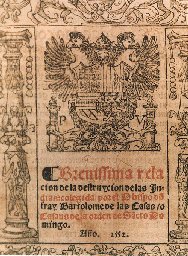 Breuissima rela
cion de la destruycion de las In-
dias: colegida por el Obispo dõ
fray Bartolome de las Casas/o
Casaus de la orden de Sãcto Do
mingo.
Año. 1552.